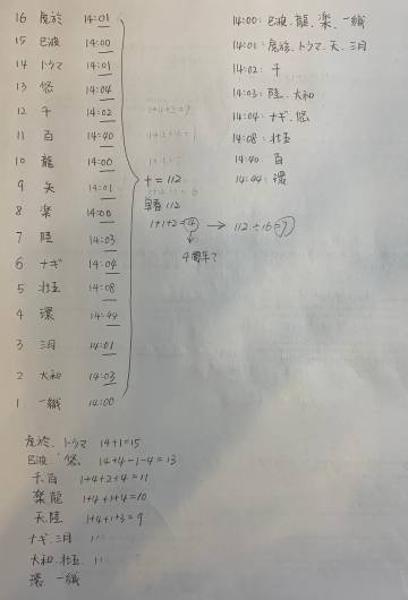 16 虎於 14:01
15 巳波 14:00
14 トウマ 14:01
13 悠 14:04
12 千 14:02
11 百 14:40
10 龍 14:00
9 天 14:01
8 楽 14:00
7 陸 14:03
6 ナギ 14:04
5 壮五 14:08
4 環 14:44
3 三月 14:01
2 大和 14:03
1 一織 14:00
十 = 112
112
1+1+2=4 → 112÷16=7
4周年?
14:00: 巳波、龍、楽、一織
14:01: 虎於、トウマ、天、三月
14:02: 千
14:03: 陸、大和
14:04: ナギ、悠
14:08: 壮五
14:40 百
14:44: 環
虎於、トウマ 14+1=15
巳波、悠 14+4-1-4=13
千、百 1+4+2+4=11
楽 龍 1+4+1+4=10
天、陸 1+4+1+3=9
ナギ、三月
大和、壮五
環 一織